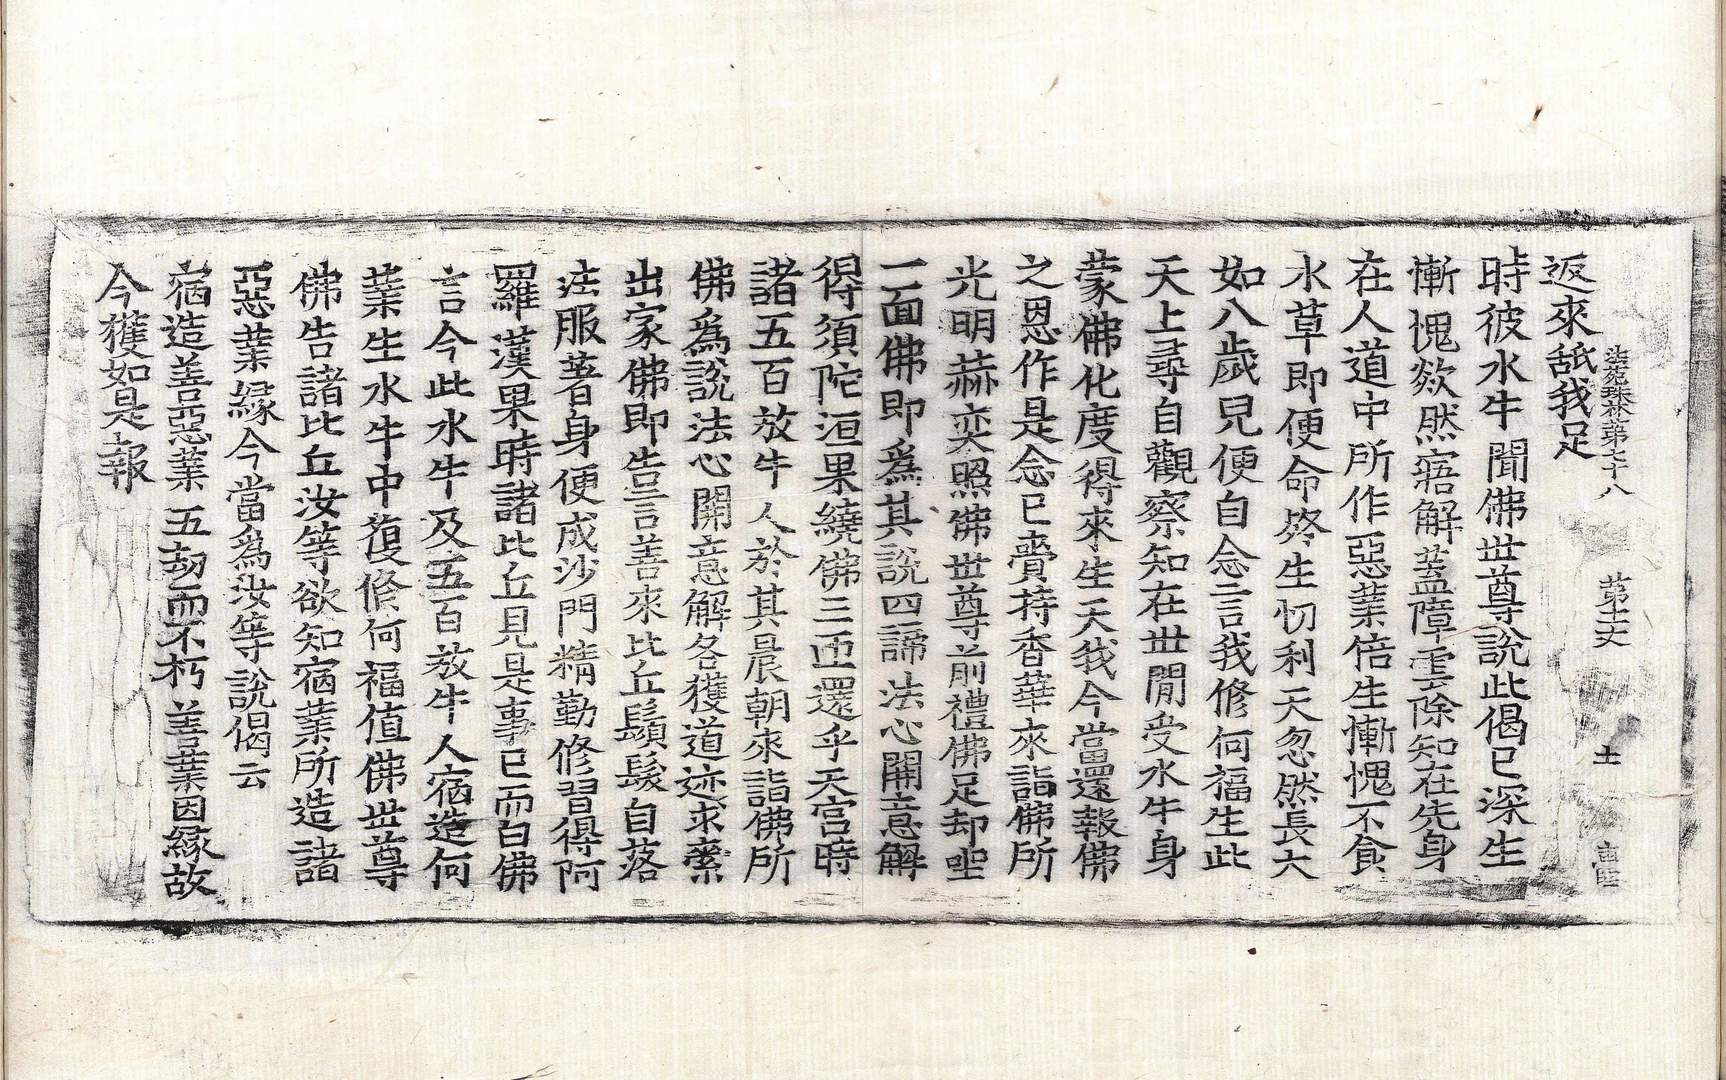 法苑珠林第七十八 第十一丈 土
返來舐我足
時彼水牛聞佛世尊說此偈已深生
慚愧欻然寤解蓋障雲除知在先身
在人道中所作惡業倍生慚愧不食
水草即便命終生忉利天忽然長大
如八歲兒便自念言我修何福生此
天上尋自觀察知在世閒受水牛身
蒙佛化度得來生天我今當還報佛
之恩作是念已賷持香華來詣佛所
光明赫奕照佛世尊前禮佛足却坐
一面佛即爲其說四諦法心開意解
得須陀洹果繞佛三匝還乎天宮時
諸五百放牛人於其晨朝來詣佛所
佛爲說法心開意解各獲道迹求索
出家佛即告言善來比丘鬚髮自落
法服著身便成沙門精勤修習得阿
羅漢果時諸比丘見是事已而白佛
言今此水牛及五百放牛人宿造何
業生水牛中復脩何福值佛世尊
佛告諸比丘汝等欲知宿業所造諸
惡業緣今當爲汝等說偈云
宿造善惡業 五劫而不朽 善業因緣故
今獲如是報